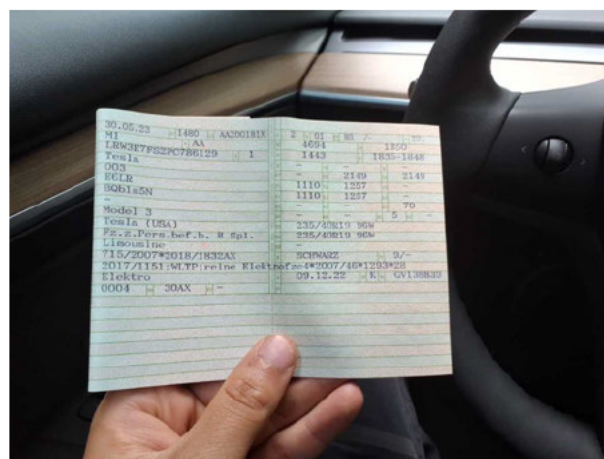 30.05.23 1480 AA200181X
M1 AA
1
Tesla
003
E6LR
Model 3
Tesla (USA)
Fz.z.Pers.bef.b. 8 Spl.
Limousine
715/2007*2018/1832AX
2017/1151;WLTP;reine Elektrofz e4*2007/46*1293*28
Elektro
0004 30AX -
2 01
4694 1850
1443 1835-1848
- - -
- 2149 2149
1110 1257 -
1110 1257 -
- - 70
- 5 -
235/40R19 96W
235/40R19 96W
SCHWARZ 9/-
09.12.22 K